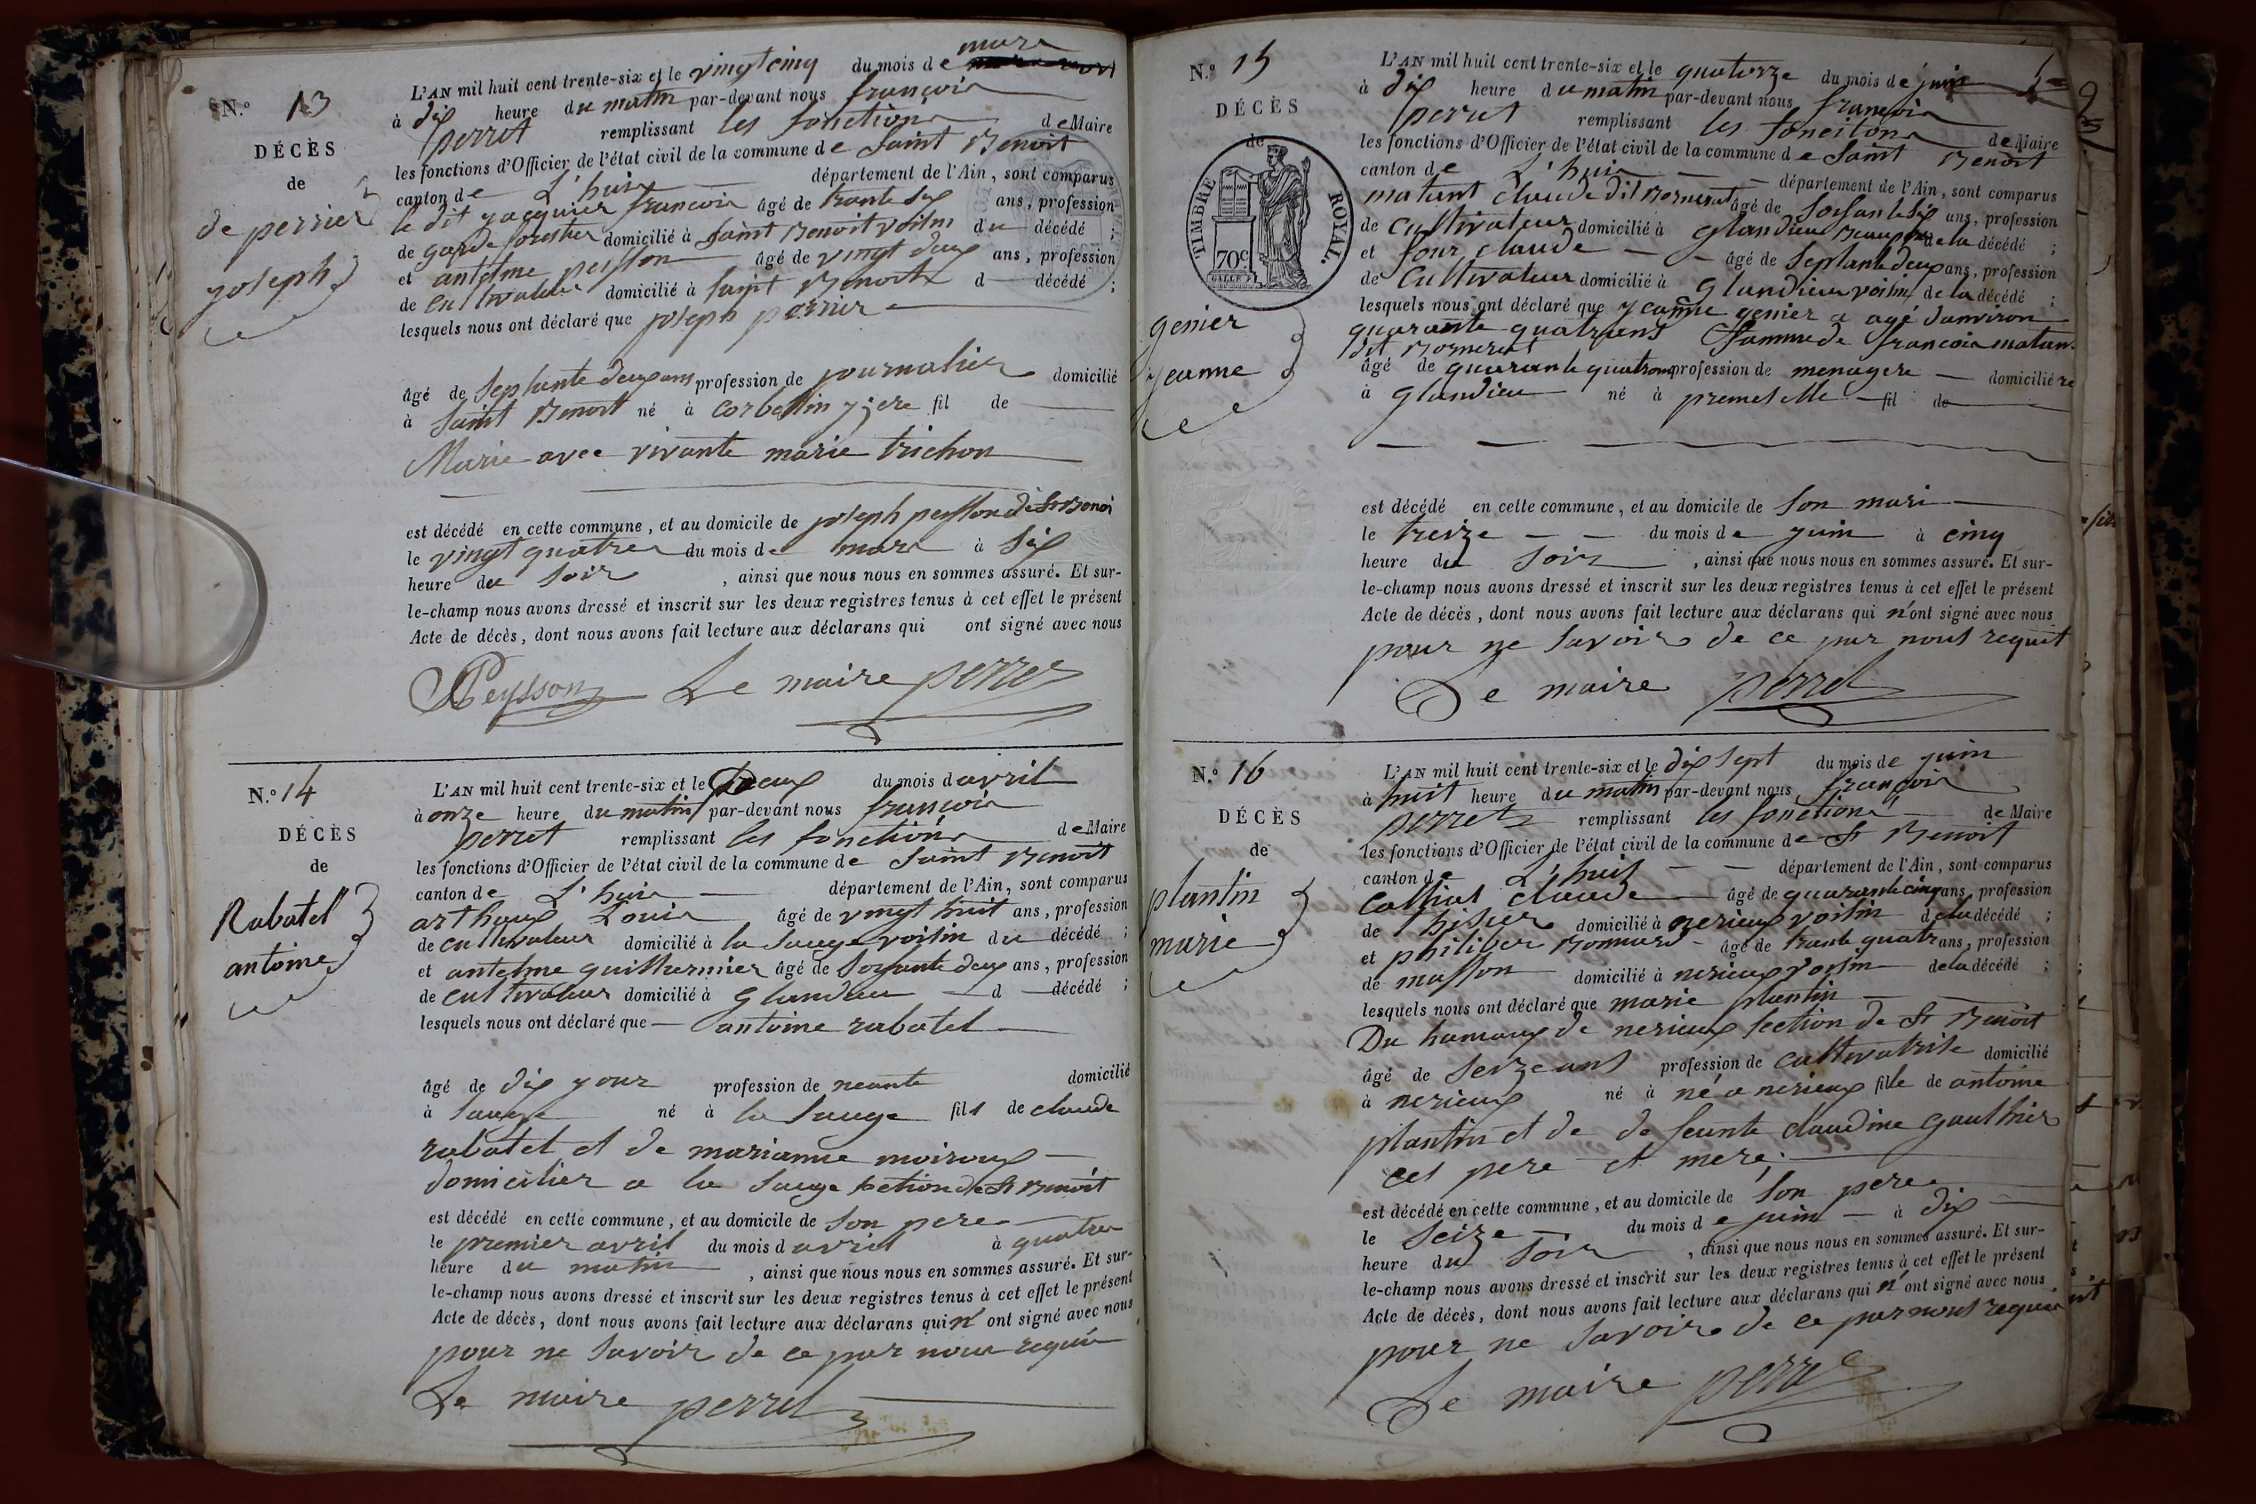 N.° 13
DÉCÈS
de
de perrier
joseph
L'AN mil huit cent trente-six et le vingt cinq du mois de mars
à dix heure du matin par-devant nous françois
perret remplissant les fonctions de Maire
les fonctions d'Officier de l'état civil de la commune de Saint Benoit
canton de L'huis département de l'Ain, sont comparus
le dit jacquier francois âgé de trante six ans, profession
de garde forestier domicilié à Saint Benoit voisin du décédé ;
et antelme peysson âgé de vingt deux ans, profession
de cultivateur domicilié à Saint Benoit d décédé ;
lesquels nous ont déclaré que joseph perrier
âgé de Septante deux ans profession de journalier domicilié
à Saint Benoit né à corbellin isere fil de
Marie avec vivante marie trichon
est décédé en cette commune, et au domicile de joseph peysson de St Benoi
le vingt quatre du mois de mars à Six
heure du Soir , ainsi que nous nous en sommes assuré. Et sur-
le-champ nous avons dressé et inscrit sur les deux registres tenus à cet effet le présent
Acte de décès, dont nous avons fait lecture aux déclarans qui ont signé avec nous
Peysson Le maire perret
N.° 14
DÉCÈS
de
Rabatel
antoine
L'AN mil huit cent trente-six et le Deux du mois d avril
à onze heure du matin par-devant nous françois
perret remplissant les fonctions de Maire
les fonctions d'Officier de l'état civil de la commune de Saint Benoit
canton de L'huis département de l'Ain, sont comparus
arthaux Louis âgé de vingt huit ans, profession
de cultivateur domicilié à la Sauge voisin du décédé ;
et antelme guillermier âgé de Soixante deux ans, profession
de cultivateur domicilié à Glandieu d décédé ;
lesquels nous ont déclaré que antoine rabatel
âgé de dix jour profession de neante domicilié
à Sauge né à la Sauge fils de claude
rabatel et de marianne moiroux
domicilier a la Sauge Section de St Benoit
est décédé en cette commune, et au domicile de Son pere
le premier avril du mois d avril à quatre
heure du matin , ainsi que nous nous en sommes assuré. Et sur-
le-champ nous avons dressé et inscrit sur les deux registres tenus à cet effet le présent
Acte de décès, dont nous avons fait lecture aux déclarans qui n' ont signé avec nous
pour ne Savoir de ce par nous requis
Le maire perret
N.° 15
DÉCÈS
de
TIMBRE ROYAL.
70c
genier
jeanne
L'AN mil huit cent trente-six et le quatorze du mois de juin
à dix heure du matin par-devant nous françois
perret remplissant les fonctions de Maire
les fonctions d'Officier de l'état civil de la commune de Saint Benoit
canton de L'huis département de l'Ain, sont comparus
matant claude dit Bornerat âgé de Soisante Six ans, profession
de cultivateur domicilié à glandieu Beaupere de la décédé ;
et four claude âgé de Septante deux ans, profession
de Cultivateur domicilié à Glandieu voisin de la décédé ;
lesquels nous ont déclaré que jeanne genier a agé danviron
quarante quatre ans famme de francois matan
dit Bornerat
âgé de quarante quatre ans profession de menagere domiciliére
à Glandieu né à premeselle fil de
est décédé en cette commune, et au domicile de Son mari
le treize du mois de juin à cinq
heure du Soir , ainsi que nous nous en sommes assuré. Et sur-
le-champ nous avons dressé et inscrit sur les deux registres tenus à cet effet le présent
Acte de décès, dont nous avons fait lecture aux déclarans qui n'ont signé avec nous
pour ne Savoir de ce par nous requit
Le maire perret
N.° 16
DÉCÈS
de
plantin
marie
L'AN mil huit cent trente-six et le dix Sept du mois de juin
à huit heure du matin par-devant nous françois
perret remplissant les fonctions de Maire
les fonctions d'Officier de l'état civil de la commune de St Benoit
canton de L'huis département de l'Ain, sont comparus
Calliat claude âgé de quarante cinq ans, profession
de thisier domicilié à nerieux voisin de la décédé ;
et philiber Bonnard âgé de trante quatr ans, profession
de masson domicilié à nerieux voisin de la décédé ;
lesquels nous ont déclaré que marie plantin
Du hamaux de nerieux Section de St Benoit
âgé de Seize ans profession de cultivatrise domicilié
à nerieux né à né a nerieux fille de antoine
plantin et de de feunte claudine gaulthier
ces pere et mere;
est décédé en cette commune, et au domicile de Son pere
le Seize du mois de juin à dix
heure du Soir , ainsi que nous nous en sommes assuré. Et sur-
le-champ nous avons dressé et inscrit sur les deux registres tenus à cet effet le présent
Acte de décès, dont nous avons fait lecture aux déclarans qui n' ont signé avec nous
pour ne Savoir de ce par nous requis
Le maire perret